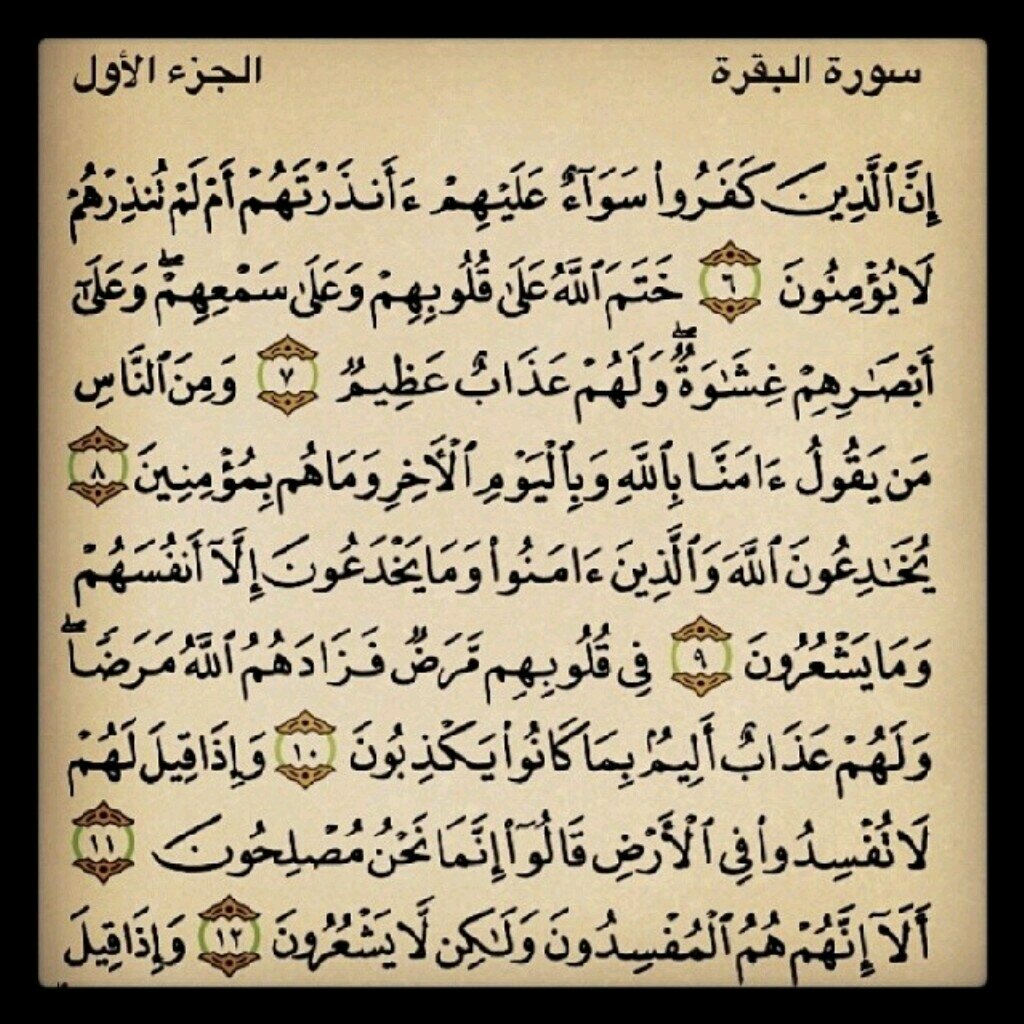 سورة البقرة الجزء الأول
إِنَّ ٱلَّذِينَ كَفَرُوا۟ سَوَآءٌ عَلَيْهِمْ ءَأَنذَرْتَهُمْ أَمْ لَمْ تُنذِرْهُمْ
لَا يُؤْمِنُونَ ٦ خَتَمَ ٱللَّهُ عَلَىٰ قُلُوبِهِمْ وَعَلَىٰ سَمْعِهِمْ ۖ وَعَلَىٰٓ
أَبْصَٰرِهِمْ غِشَٰوَةٌ ۖ وَلَهُمْ عَذَابٌ عَظِيمٌ ٧ وَمِنَ ٱلنَّاسِ
مَن يَقُولُ ءَامَنَّا بِٱللَّهِ وَبِٱلْيَوْمِ ٱلْأَخِرِ وَمَا هُم بِمُؤْمِنِينَ ٨
يُخَٰدِعُونَ ٱللَّهَ وَٱلَّذِينَ ءَامَنُوا۟ وَمَا يَخْدَعُونَ إِلَّآ أَنفُسَهُمْ
وَمَا يَشْعُرُونَ ٩ فِى قُلُوبِهِم مَّرَضٌ فَزَادَهُمُ ٱللَّهُ مَرَضًا ۖ
وَلَهُمْ عَذَابٌ أَلِيمٌۢ بِمَا كَانُوا۟ يَكْذِبُونَ ١٠ وَإِذَا قِيلَ لَهُمْ
لَا تُفْسِدُوا۟ فِى ٱلْأَرْضِ قَالُوٓا۟ إِنَّمَا نَحْنُ مُصْلِحُونَ ١١
أَلَآ إِنَّهُمْ هُمُ ٱلْمُفْسِدُونَ وَلَٰكِن لَّا يَشْعُرُونَ ١٢ وَإِذَا قِيلَ